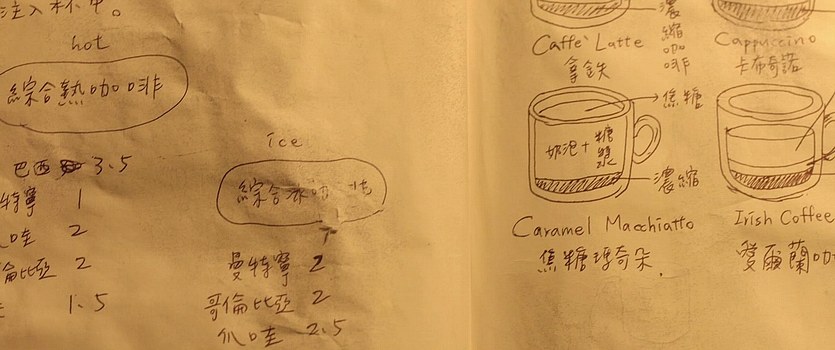 注入杯中。
hot
綜合熱咖啡
巴西 3.5
特寧 1
哇 2
倫比亞 2
1.5
ice
綜合冰咖啡
曼特寧 2
哥倫比亞 2
爪哇 2.5
濃縮咖啡
Caffe' Latte
拿鐵
Cappuccino
卡布奇諾
焦糖
奶泡+糖漿
濃縮
Caramel Macchiatto
焦糖瑪奇朵.
Irish Coffee
愛爾蘭咖